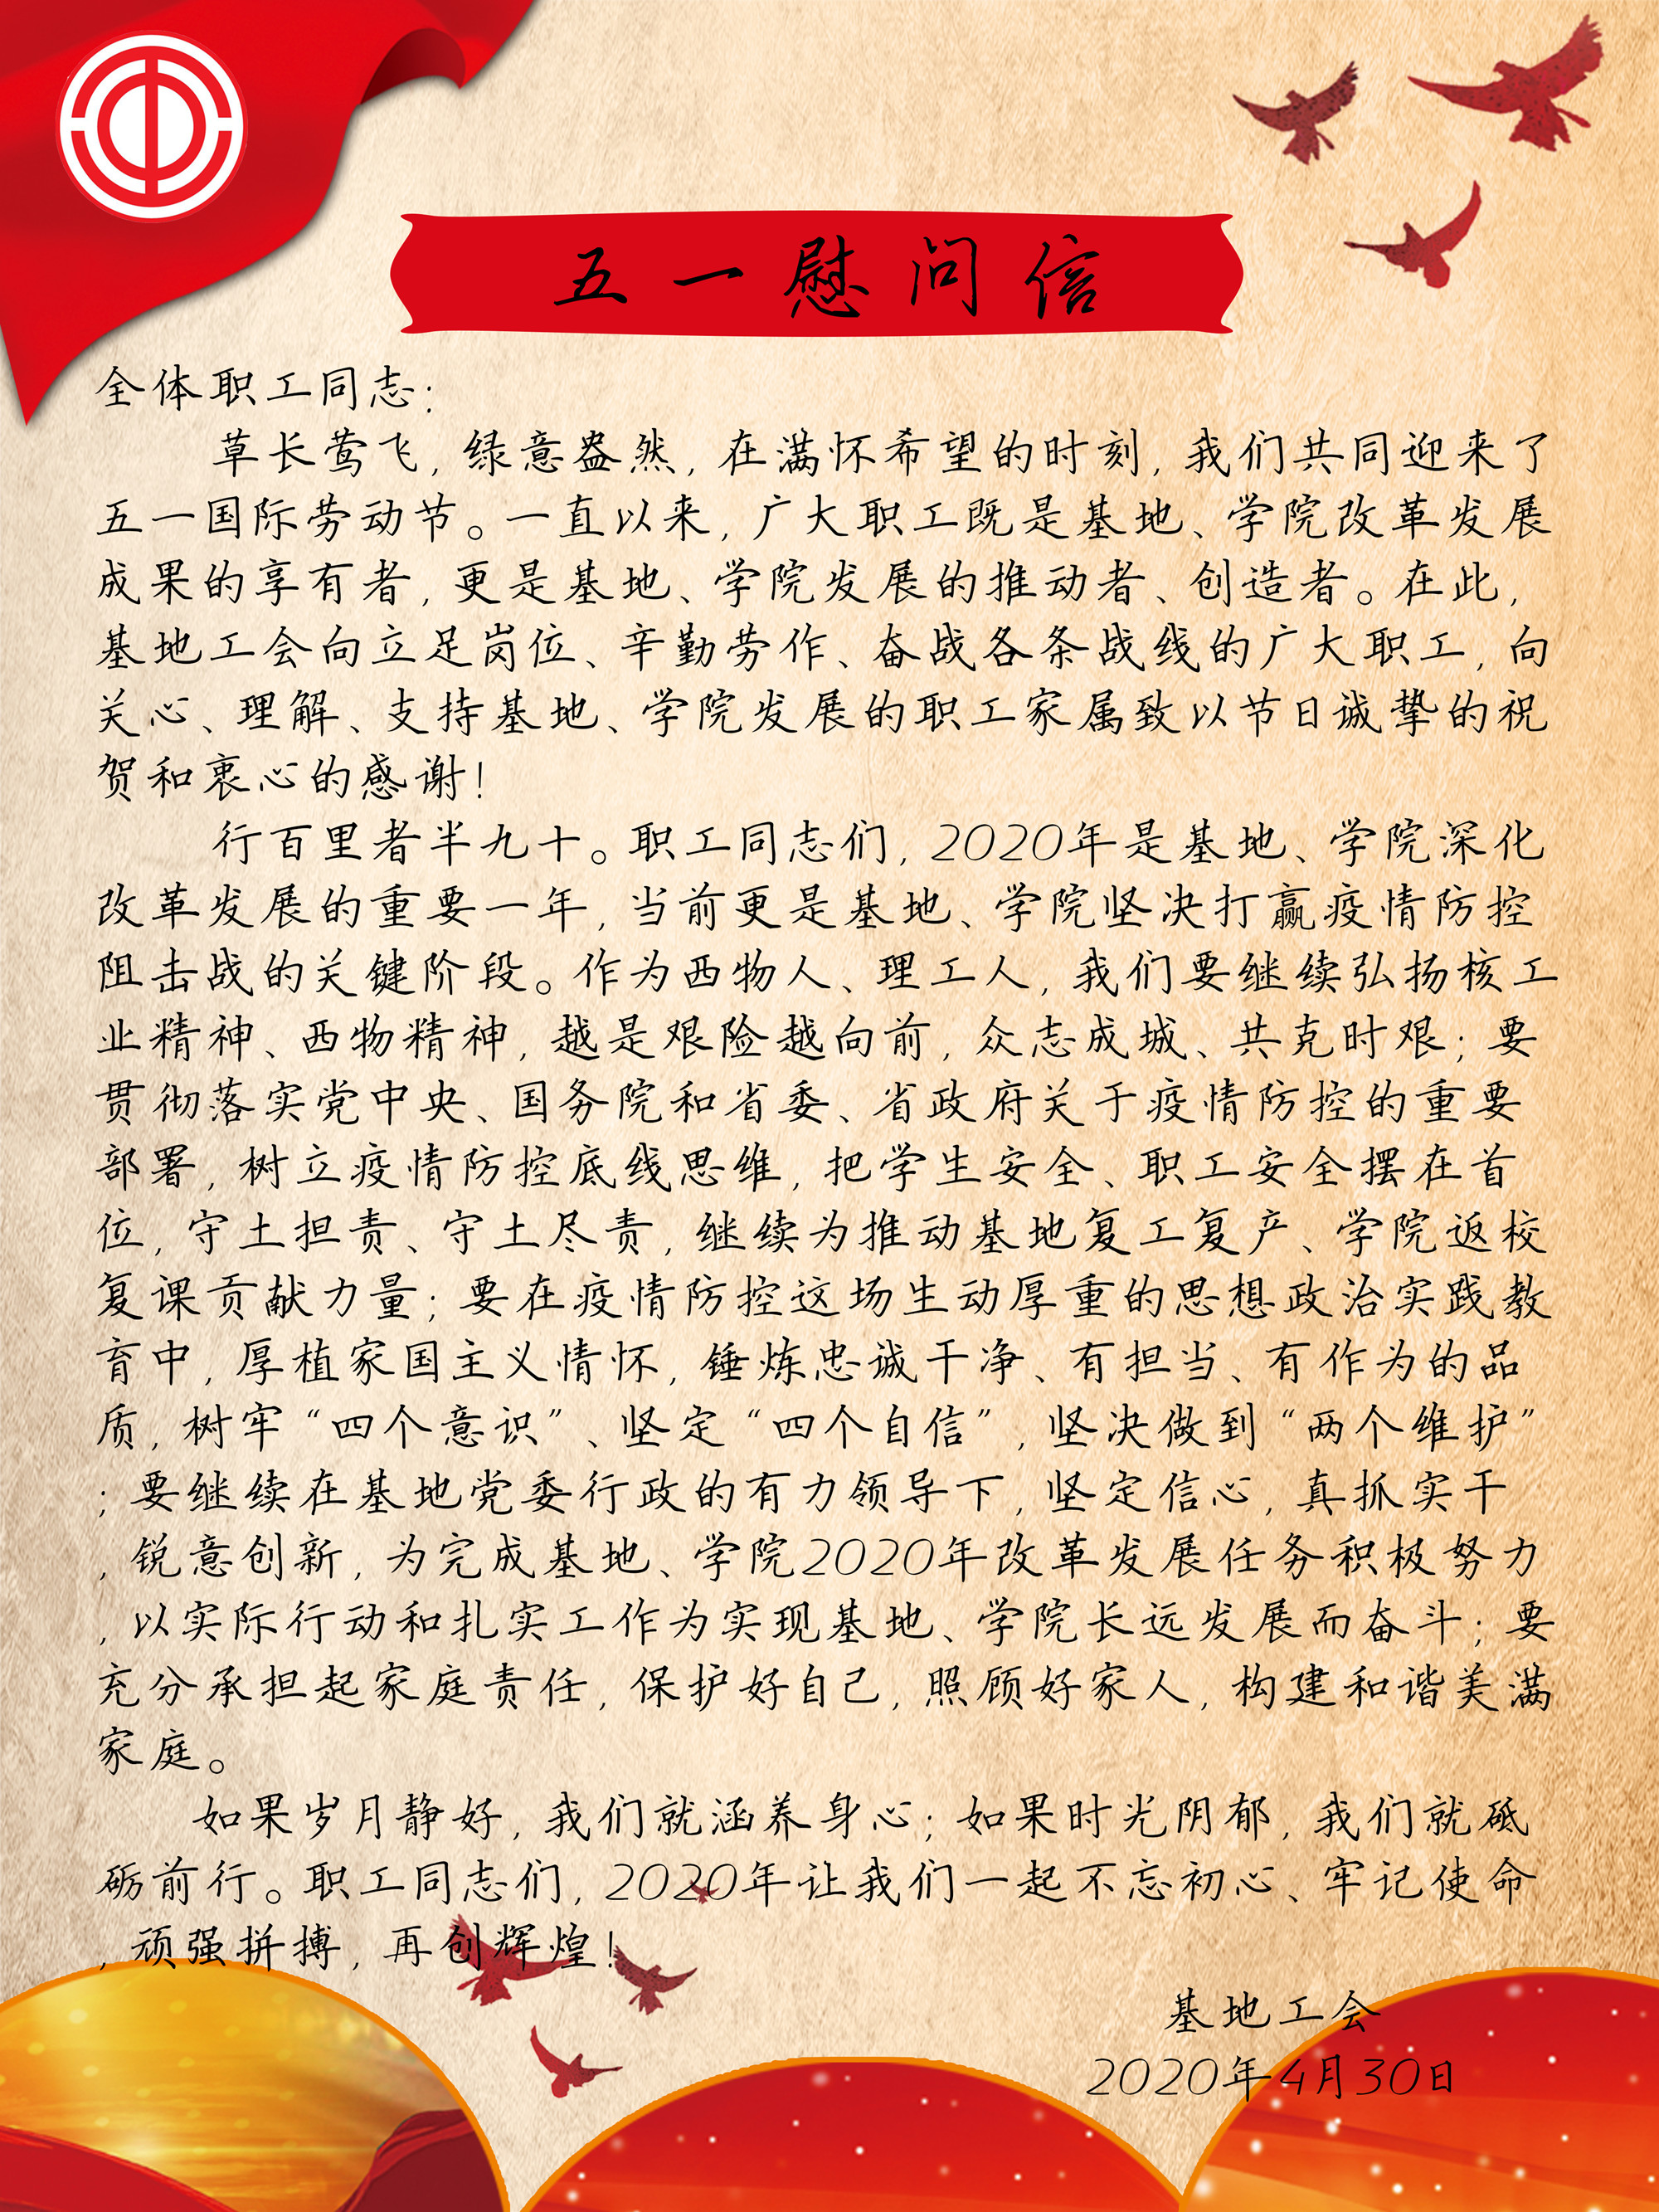 五一慰问信
全体职工同志：
草长莺飞，绿意盎然，在满怀希望的时刻，我们共同迎来了
五一国际劳动节。一直以来，广大职工既是基地、学院改革发展
成果的享有者，更是基地、学院发展的推动者、创造者。在此，
基地工会向立足岗位、辛勤劳作、奋战各条战线的广大职工，向
关心、理解、支持基地、学院发展的职工家属致以节日诚挚的祝
贺和衷心的感谢！
行百里者半九十。职工同志们，2020年是基地、学院深化
改革发展的重要一年，当前更是基地、学院坚决打赢疫情防控
阻击战的关键阶段。作为西物人、理工人，我们要继续弘扬核工
业精神、西物精神，越是艰险越向前，众志成城、共克时艰；要
贯彻落实党中央、国务院和省委、省政府关于疫情防控的重要
部署，树立疫情防控底线思维，把学生安全、职工安全摆在首
位，守土担责、守土尽责，继续为推动基地复工复产、学院返校
复课贡献力量；要在疫情防控这场生动厚重的思想政治实践教
育中，厚植家国主义情怀，锤炼忠诚干净、有担当、有作为的品
质，树牢“四个意识”、坚定“四个自信”，坚决做到“两个维护”
；要继续在基地党委行政的有力领导下，坚定信心，真抓实干
，锐意创新，为完成基地、学院2020年改革发展任务积极努力
，以实际行动和扎实工作为实现基地、学院长远发展而奋斗；要
充分承担起家庭责任，保护好自己，照顾好家人，构建和谐美满
家庭。
如果岁月静好，我们就涵养身心；如果时光阴郁，我们就砥
砺前行。职工同志们，2020年让我们一起不忘初心、牢记使命
，顽强拼搏，再创辉煌！
基地工会
2020年4月30日